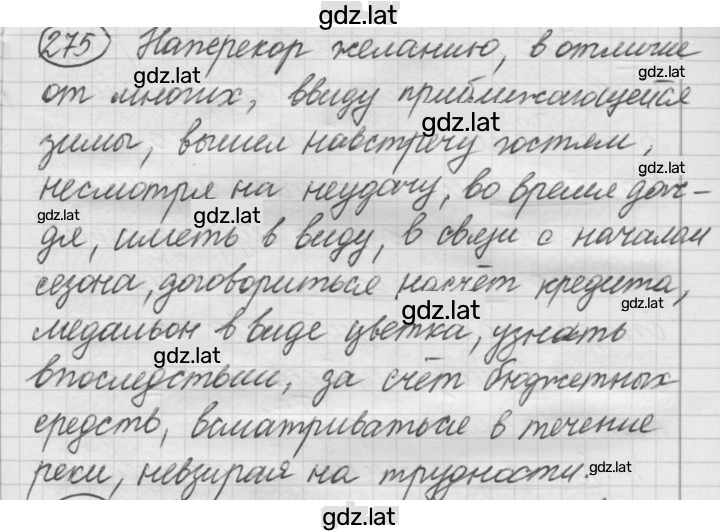 gdz.lat
275 Наперекор желанию, в отличие
gdz.lat gdz.lat
от многих, ввиду приближающейся
gdz.lat
зимы, вышел навстречу гостям,
gdz.lat
несмотря на неудачу, во время дож-
gdz.lat gdz.lat
дя, иметь в виду, в связи с началом
gdz.lat
сезона, договориться насчёт кредита,
gdz.lat gdz.lat
медальон в виде цветка, узнать
gdz.lat
впоследствии, за счёт бюджетных
средств, всматриваться в течение
реки, невзирая на трудности. gdz.lat
gdz.lat